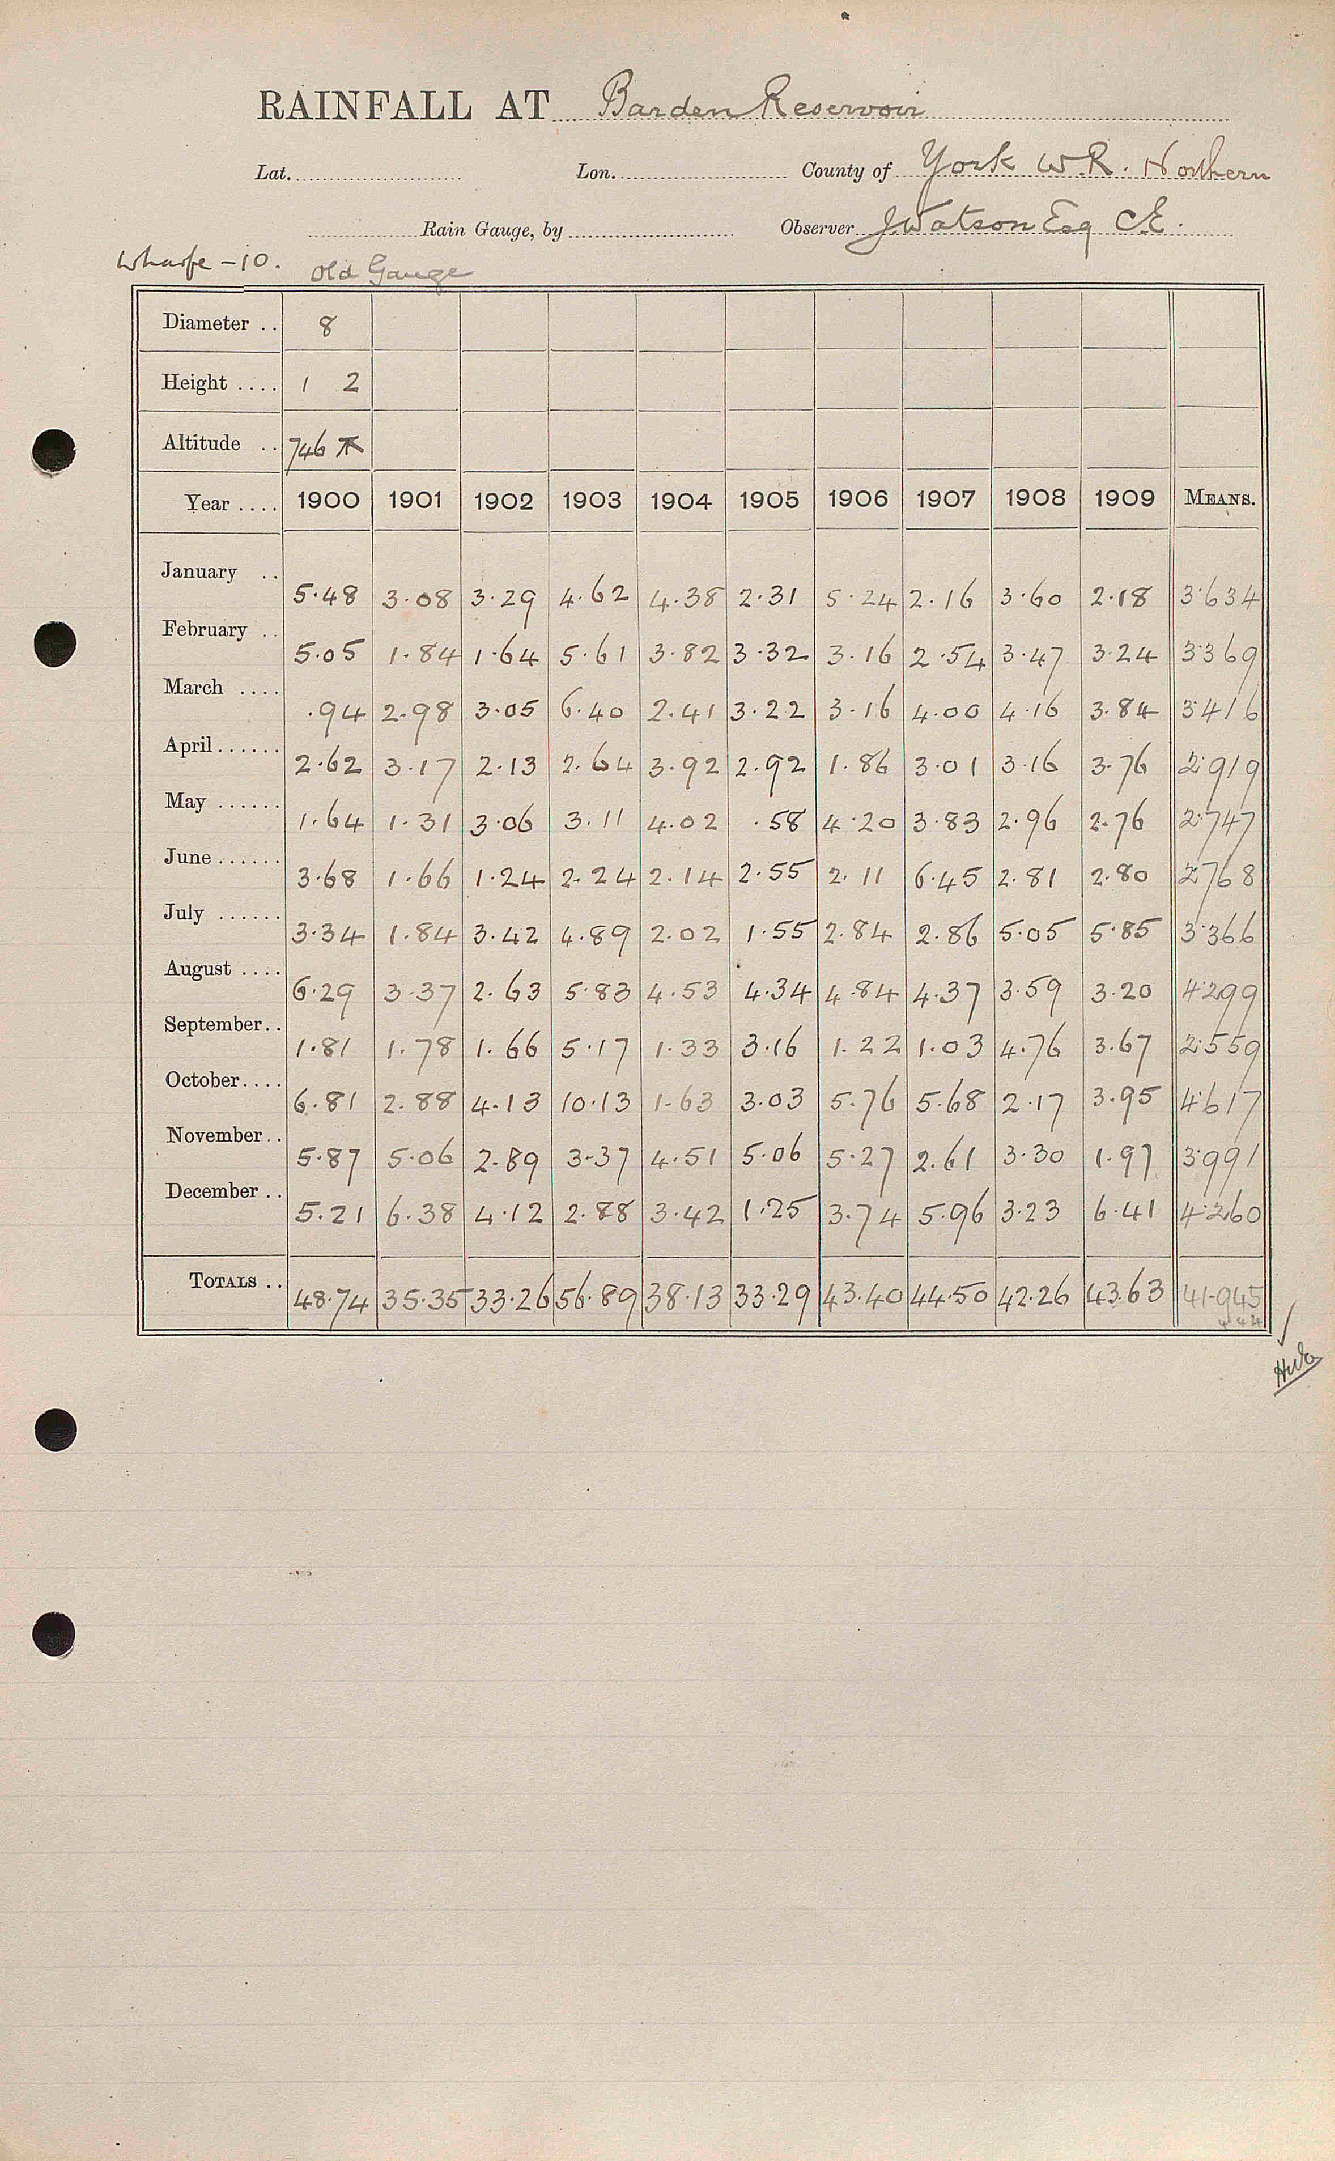 RAINFALL AT Barden Reservoir
Lat. Lon. County of York W.R. Northern
Rain Gauge, by Observer J Watson Esq C.E.
Wharfe - 10. Old Gauge
Diameter .. 8
Height .... 1 2
Altitude .. 746
Year .... 1900 1901 1902 1903 1904 1905 1906 1907 1908 1909 MEANS.
January .. 5.48 3.08 3.29 4.62 4.38 2.31 5.24 2.16 3.60 2.18 3.634
February .. 5.05 1.84 1.64 5.61 3.82 3.32 3.16 2.54 3.47 3.24 3369
March .... .94 2.98 3.05 6.40 2.41 3.22 3.16 4.00 4.16 3.84 3.416
April ...... 2.62 3.17 2.13 2.64 3.92 2.92 1.86 3.01 3.16 3.76 2.919
May ...... 1.64 1.31 3.06 3.11 4.02 .58 4.20 3.83 2.96 2.76 2.747
June ...... 3.68 1.66 1.24 2.24 2.14 2.55 2.11 6.45 2.81 2.80 2.768
July ...... 3.34 1.84 3.42 4.89 2.02 1.55 2.84 2.86 5.05 5.85 3.366
August .... 6.29 3.37 2.63 5.83 4.53 4.34 4.84 4.37 3.59 3.20 4.299
September .. 1.81 1.78 1.66 5.17 1.33 3.16 1.22 1.03 4.76 3.67 2.559
October .... 6.81 2.88 4.13 10.13 1.63 3.03 5.76 5.68 2.17 3.95 4.617
November .. 5.87 5.06 2.89 3.37 4.51 5.06 5.27 2.61 3.30 1.97 3.991
December .. 5.21 6.38 4.12 2.88 3.42 1.25 3.74 5.96 3.23 6.41 4.260
TOTALS .. 48.74 35.35 33.26 56.89 38.13 33.29 43.40 44.50 42.26 43.63 41.945